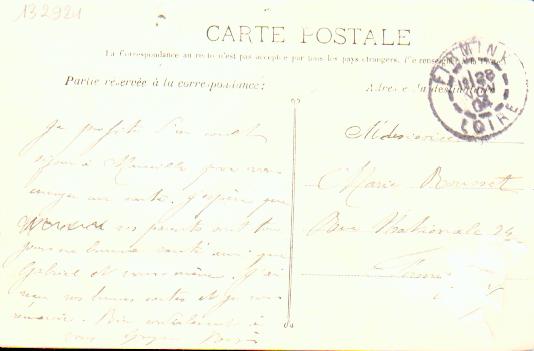 132921
CARTE POSTALE
La Correspondance au recto n'est pas acceptée par tous les pays étrangers.
Partie réservée à la correspondance;
Adresse du destinataire
FIRMINY
28
04
LOIRE
Je profite d'un court
séjour à Marseille pour vous
envoyer une carte. J'espère que
vos parents sont
bonne santé ainsi que
Gabriel et vous-même. J'ai
reçu vos bonnes cartes et je vous
remercie. Bien cordialement à
vous
Mademoiselle
Marie Rousset
Rue Nationale 24